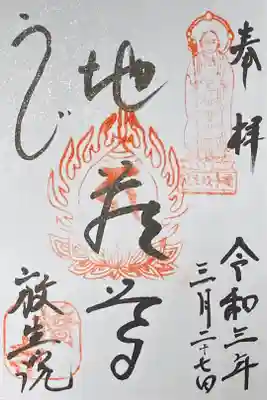 奉拝
令和三年
三月二十七日
地蔵尊
うじ
放生院